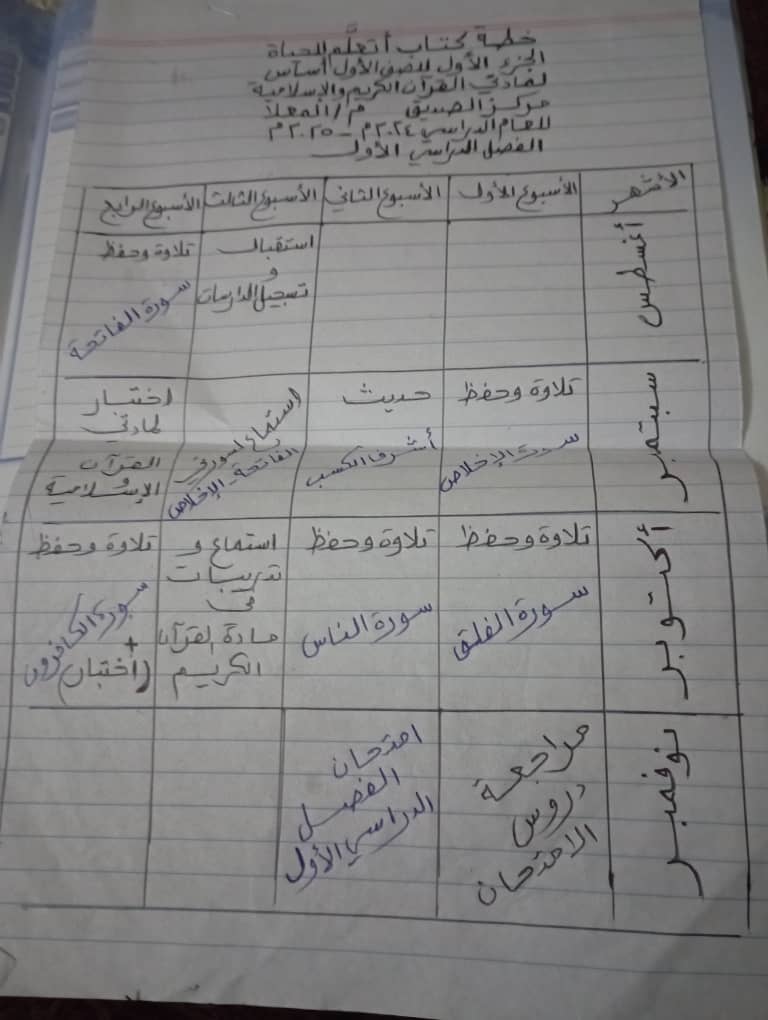 خطة كتاب أتعلَّم للحياة
الجزء الأول للصف الأول أساس
لمادتي القرآن الكريم والإسلامية
مركز الصديق م/ المعلا
للعام الدراسي ٢٠٢٤م - ٢٠٢٥م
الفصل الدراسي الأول
الأشهر الأسبوع الأول الأسبوع الثاني الأسبوع الثالث الأسبوع الرابع
أغسطس
استقبال
و
تسجيل الدارسات
تلاوة وحفظ
سورة الفاتحة
سبتمبر
تلاوة وحفظ
سورة الإخلاص
حديث
أشرف الكسب
استماع لسورتي
الفاتحة - الإخلاص
اختبار
لمادتي
القرآن
و
الإسلامية
أكتوبر
تلاوة وحفظ
سورة الفلق
تلاوة وحفظ
سورة الناس
استماع و
تدريبات
في
مادة القرآن
الكريم
تلاوة وحفظ
سورة الكافرون
+
(اختبار)
نوفمبر
مراجعة
دروس
الامتحان
امتحان
الفصل
الدراسي الأول